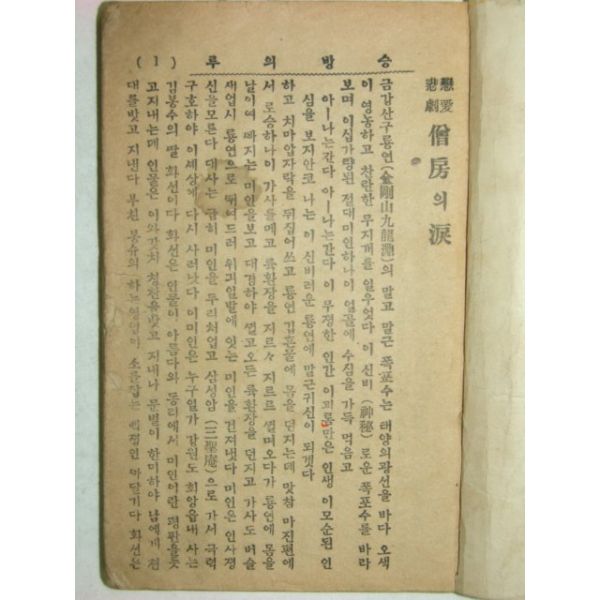 戀愛
悲劇 僧房의 淚
금강산구룡연(金剛山九龍淵)의 말고 말근 폭포수는 태양의광선을 바다 오색
이 영농하고 찬란한 무지개를 일우엇다 이 신비(神秘)로운 폭포수를 바라
보며 이십가량된 절대미인하나이 얼골에 수심을 가득 먹음고
아―나는간다 아―나는간다 이 무정한 인간 이괴로만은 인생 이모순된 인
심을 보지안코 나는 이 신비러운 룡연에 말근귀신이 되겟다
하고 치마압자락을 뒤집어쓰고 룡연 깁흔물에 몸을 던지는데 맛참 마진편에
서 로승하나이 가사를메고 륙환장을 지르々 지르르 썰며오다가 룡연에 몸을
날이여 빠지는 미인을보고 대경하야 썰고오든 륙환장을 던지고 가사도 버슬
새업시 룡연으로 뛰여드러 위긔일발에 잇는 미인을 건저냇다 미인은 인사정
신을모른다 대사는 급히 미인을 두리처업고 삼성암(三聖庵)으로 가서 극력
구호하야 이세상에 다시 사러낫다 이미인은 누구일가 강원도 회양읍내 사는
김봉수의 딸 화선이다 화선은 인물이 아름다와 동리에서 미인이란 평판을듯
고지내는데 인물은 이와가치 청찬을밧고 지내나 문벌이 한미하야 남에게 천
대를밧고 지낸다 부친 봉수의 하는영업이 소를잡는 백정인 까닭기다 화선은
승방의루
(1)